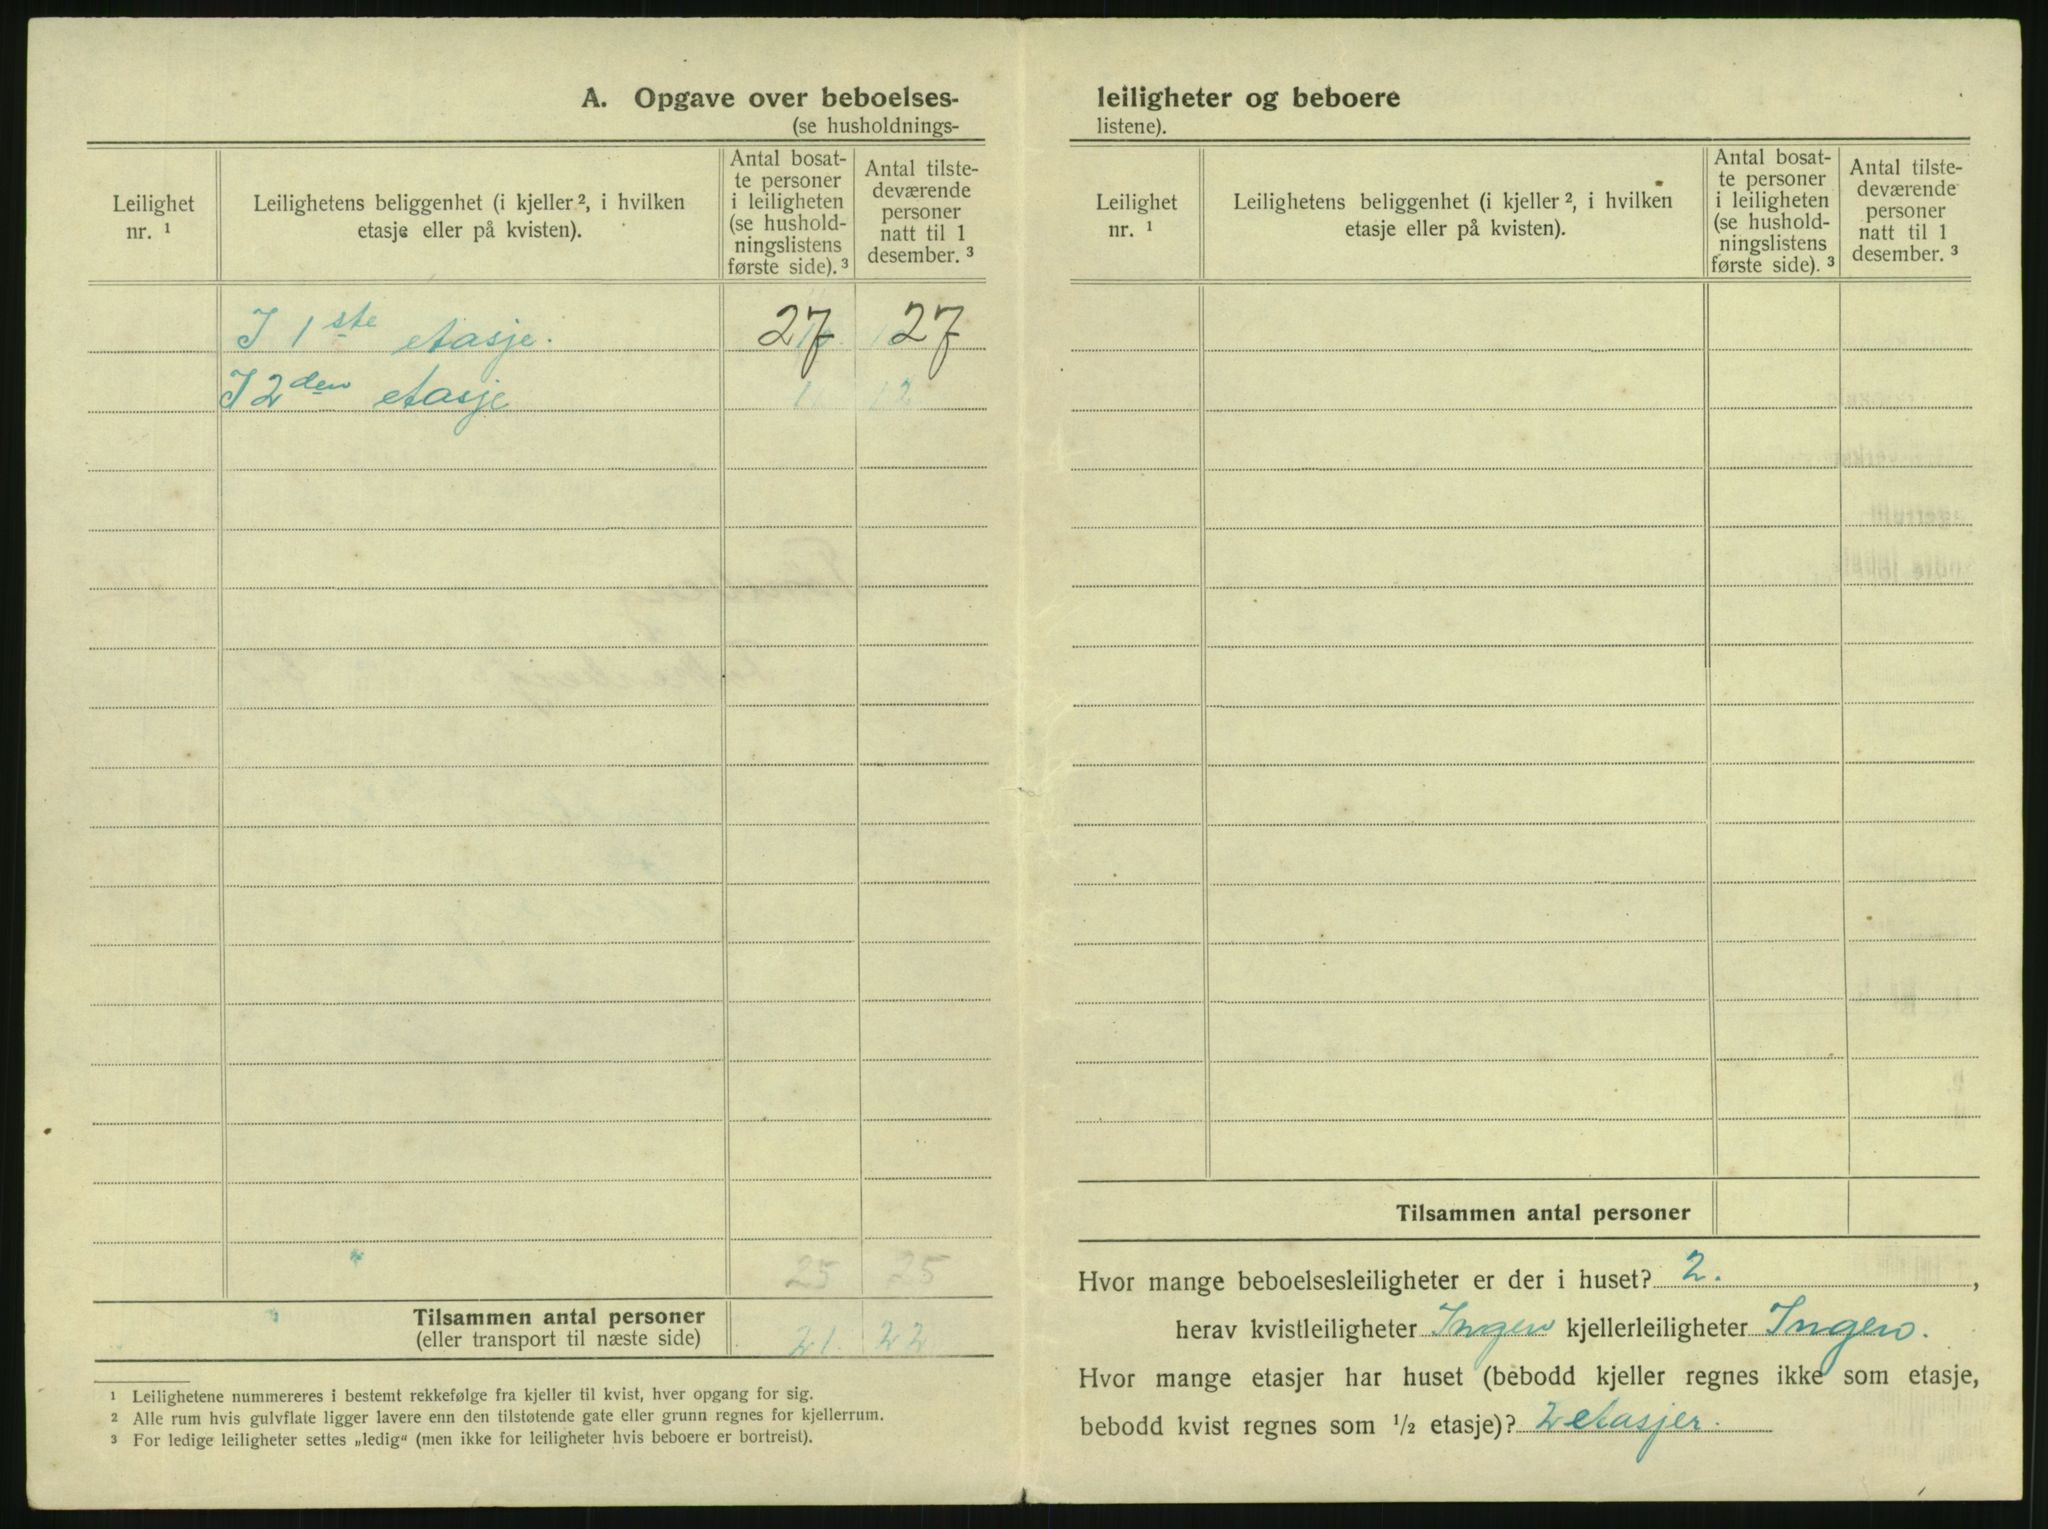 A. Opgave over beboelses-
(se husholdnings-
Leilighet nr. ¹
Leilighetens beliggenhet (i kjeller ², i hvilken
etasje eller på kvisten).
Antal bosat-
te personer
i leiligheten
(se hushold-
ningslistens
første side). ³
Antal tilste-
deværende
personer
natt til 1
desember. ³
I 1ste etasje. 27 27
I 2den etasje 11 12
25 25
Tilsammen antal personer 21. 22
(eller transport til næste side)
¹ Leilighetene nummereres i bestemt rekkefølge fra kjeller til kvist, hver opgang for sig.
² Alle rum hvis gulvflate ligger lavere enn den tilstøtende gate eller grunn regnes for kjellerrum.
³ For ledige leiligheter settes „ledig“ (men ikke for leiligheter hvis beboere er bortreist).
leiligheter og beboere
listene).
Leilighet nr. ¹
Leilighetens beliggenhet (i kjeller ², i hvilken
etasje eller på kvisten).
Antal bosat-
te personer
i leiligheten
(se hushold-
ningslistens
første side). ³
Antal tilste-
deværende
personer
natt til 1
desember. ³
Tilsammen antal personer
Hvor mange beboelsesleiligheter er der i huset? 2. ,
herav kvistleiligheter Ingen kjellerleiligheter Ingen.
Hvor mange etasjer har huset (bebodd kjeller regnes ikke som etasje,
bebodd kvist regnes som ½ etasje)? 2 etasjer.